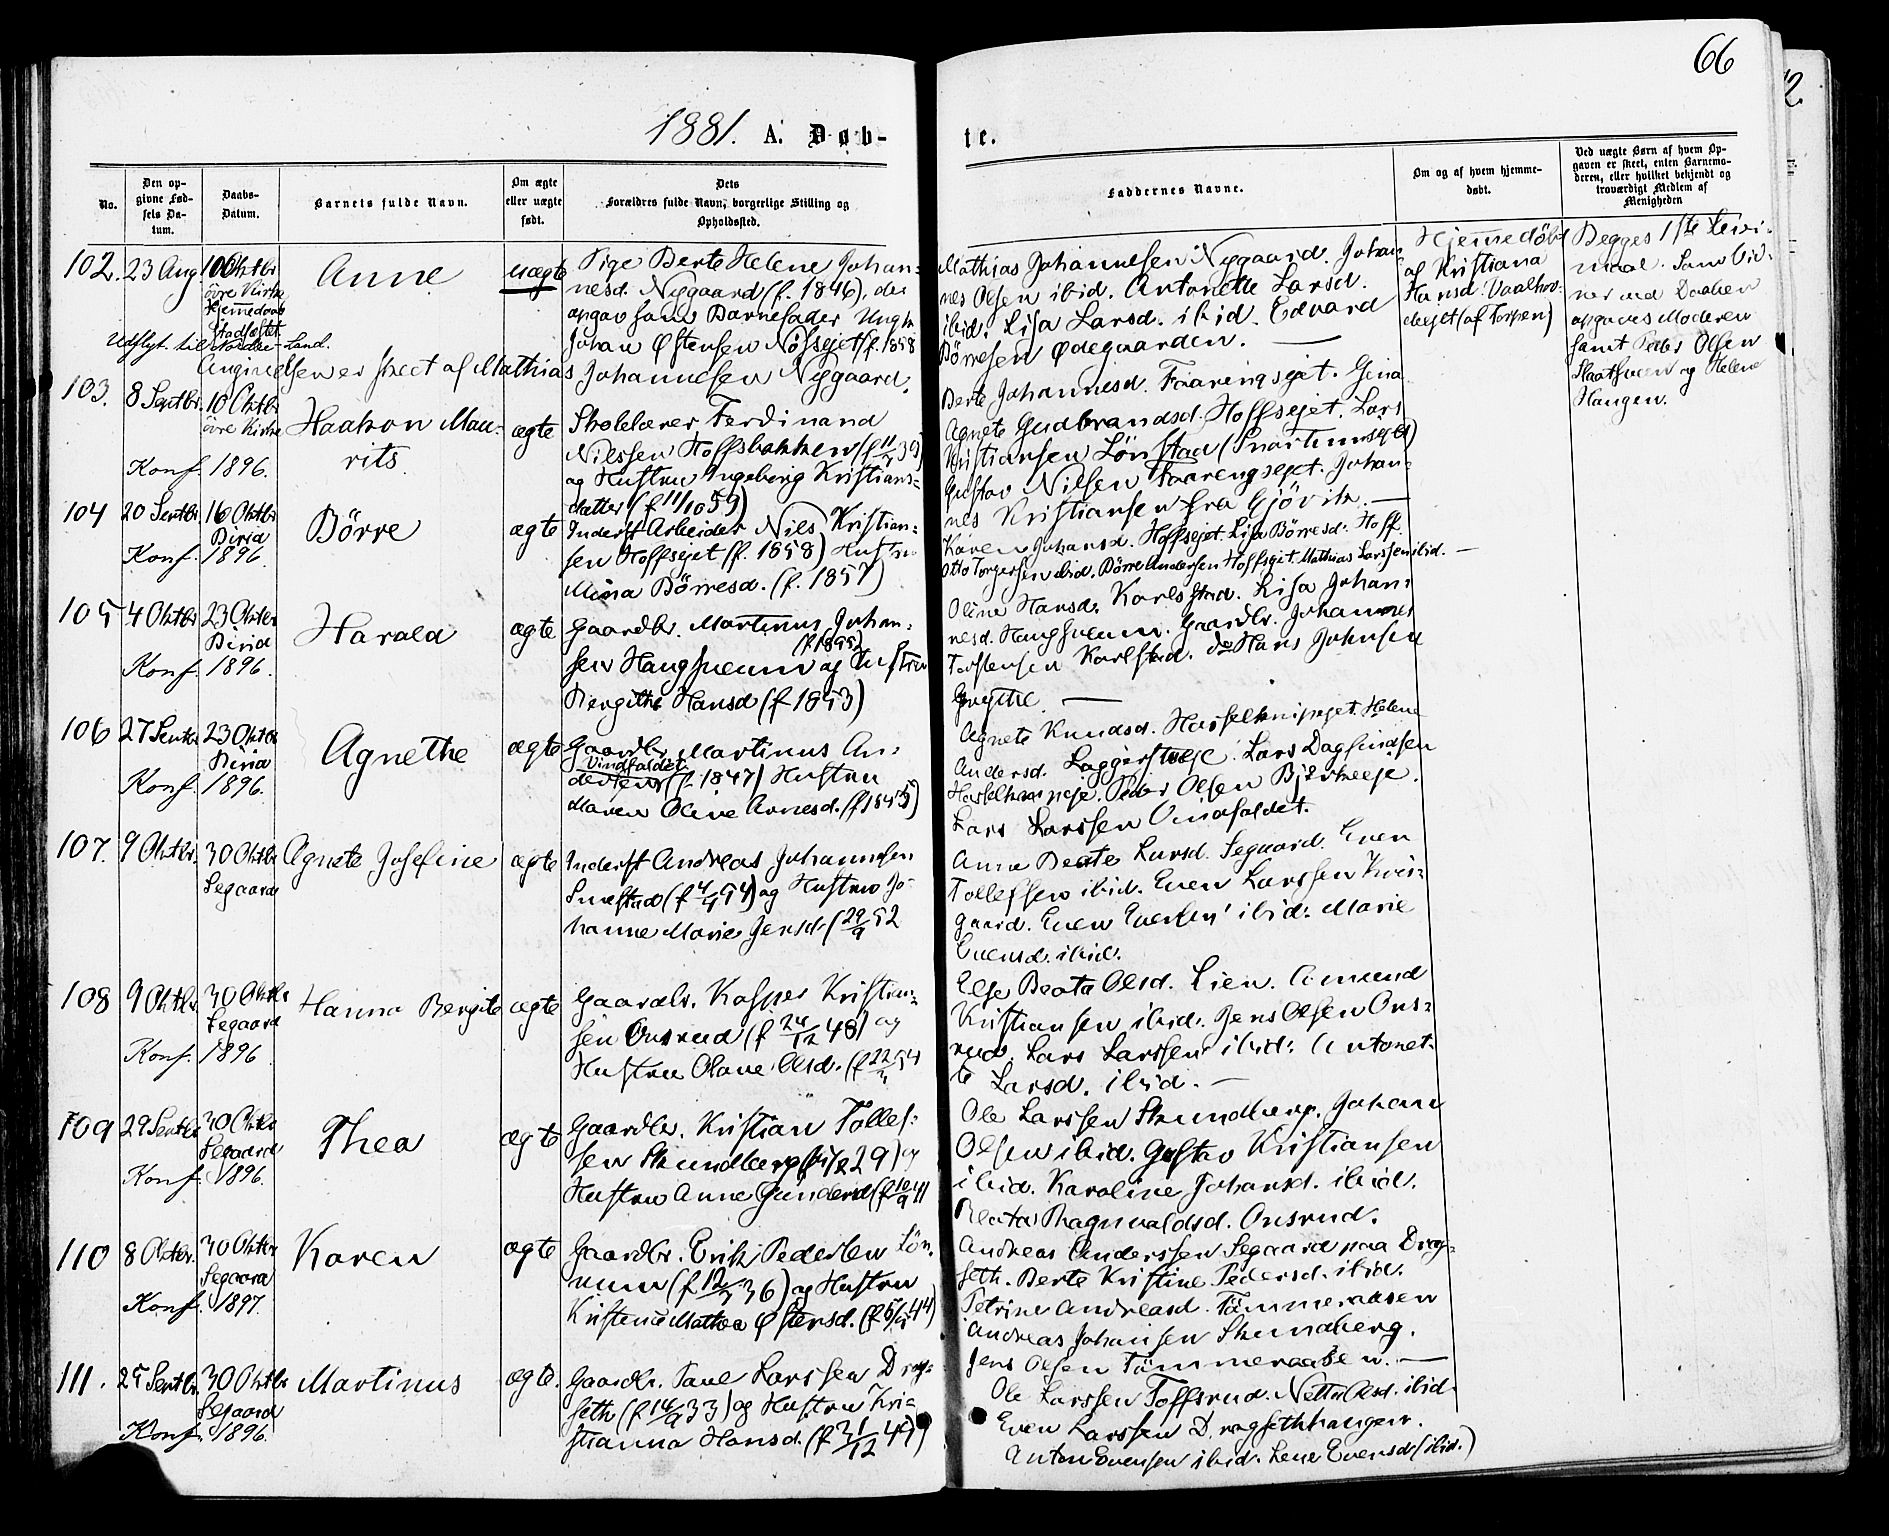 66
1881. A. Døb-
te.
No.
Den op-
givne Fød-
sels Da-
tum.
Daabs-
Datum.
Barnets fulde Navn.
Om ægte
eller uægte
født.
Dets
Forældres fulde Navn, borgerlige Stilling og
Opholdssted.
Faddernes Navne.
Om og af hvem hjemme-
døbt.
Ved uægte Børn af hvem Op-
gaven er skeet, enten Barnemo-
deren, eller hvilket bekjendt og
troværdigt Medlem af
Menigheden
102. 23 Aug. 10 Oktbr
øvre Kirke
Hjemmedaab
Stadfæstet
Anne
uægte
Pige Berte Helene Johan-
nesd. Nygaard (f. 1846), der
opgav som Barnefader Ungk.
Johan Østensen Nøssejet (f. 1858
Udflyt. til Nordre-Land.
Angivelsen er skeet af Mathias Johannesen Nygaard.
Mathias Johannesen Nygaard. Johan-
nes Olsen ibid. Antonette Larsd.
ibid. Lisa Larsd. ibid. Edvard
Børresen Ødegaarden.
Hjemmedøbt
af Kristiana
Hansd. Vaalhov-
dejet (af Torpen)
Begges 1ste Leier-
maal. Som Vid-
ner ved Daaben
opgaves Moderen
samt Peder Olsen
og Helene
Haugen.
103. 8 Septbr. 10 Oktbr
øvre Kirke
Konf. 1896.
Haakon Mau-
rits
ægte
Skolelærer Ferdinand
Nilssen Hoffsbakken (f 11/ 39)
og Hustru Ingeborg Kristians-
datter (f 11/10 59)
Berte Johannesd. Faarengsejet. Gina
Agnete Gudbrandsd. Hoffsejet. Lars
Kristiansen Lönstad (Snartumsejet)
Gustav Nilsen Faarengsejet. Johan-
nes Kristiansen fra Gjövik.
104 20 Septbr. 16 Oktbr
Birid
Konf. 1896.
Börre
ægte
Inderst Arbeider Nils Kristian-
sen Hoffsejet (f. 1858) Hustru
Mina Börresd. (f. 1857)
Karen Johansd. Hoffsejet. Lisa Börresd. Hoff.
Otto Torgersen ibid. Börre Andersen Hoffsejet. Mathias Larssen ibid.
105 4 Oktbr 23 Oktbr
Birid
Konf. 1896.
Harald
ægte
Gaardbr. Martinus Johan-
sen Haugsveum og Hustru
Bergithe Hansd (f 1853)
Oline Hansd. Karlstad. Lisa Johan-
nesd. Haugsveum. Gaardbr. Johannes
Torstensen Karlstad. do Hans Johnsen
106 27 Septbr 23 Oktbr
Birid
Konf. 1896.
Agnethe
ægte
Gaardbr. Martinus An-
dersens Vindfaldet (f. 1847) Hustru
Maren Oline Arnesd. (f 1845)
Agnete Knudsd. Hasselknipejet. Helene
Andersd. Laggerstueje. Lars Dagfindsen
Hasselknipeje. Peder Olsen Bjerkeeje.
Lars Larssen Vindfaldet.
107. 9 Oktbr. 30 Oktbr
Segaard
Agnete Josefine
ægte
Inderst Andreas Johannesen
Smestad (f 4/4 54) og Hustru Jo-
hanne Marie Jensd. (29/9 52
Anne Beate Larsd. Segaard. Even
Tollefsen ibid. Even Larssen Kvir-
gaard. Even Evensen ibid. Marie
Evensd. ibid.
108 9 Oktbr. 30 Oktbr
Segaard
Konf. 1896
Hanna Bergite
ægte
Gaardbr. Kasper Kristian-
sen Onsrud (f 24/12 48) og
Hustru Olave Olsd. (f 22/ 54
Else Beata Olsd. Lien. Amund
Kristiansen ibid. Jens Olsen Ons-
rud. Lars Larssen ibid. Antonet-
te Larsd. ibid.
109 29 Septbr 30 Oktbr
Segaard
Konf. 1896.
Thea
ægte
Gaardbr. Kristian Tollef-
sen Skundberg ( 29) og
Hustru Anne Gundersd (f 10/9 41
Ole Larssen Skundberg. Johan
Olsen ibid. Gustav Kristiansen
ibid. Karoline Johansd. ibid.
Beata Ragnvaldsd. Onsrud.
110 8 Oktbr. 30 Oktbr
Segaard
Konf. 1897.
Karen
ægte
Gaardbr. Erik Pedersen Lön-
num (f 12/3 36) og Hustru
Kristine Mathea Østensd. (f 44)
Andreas Anderssen Segaard paa Drog-
seth. Berte Kristine Pedersd. ibid.
Petrine Andreasd. Tömmeraasen
Andreas Johansen Skundberg.
Jens Olsen Tömmeraasen.
111. 25 Septbr. 30 Oktbr
Segaard
Konf. 1896.
Martinus
ægte.
Gaardbr. Paul Larssen Drog-
seth (f 14/9 33) og Hustru Kri-
stianna Hansd. (f 31/12 41)
Ole Larssen Toffsrud. Nette Olsd. ibid.
Even Larssen Drogsethhaugen.
Anton Evensen ibid. Lene Evensd (ibid.)